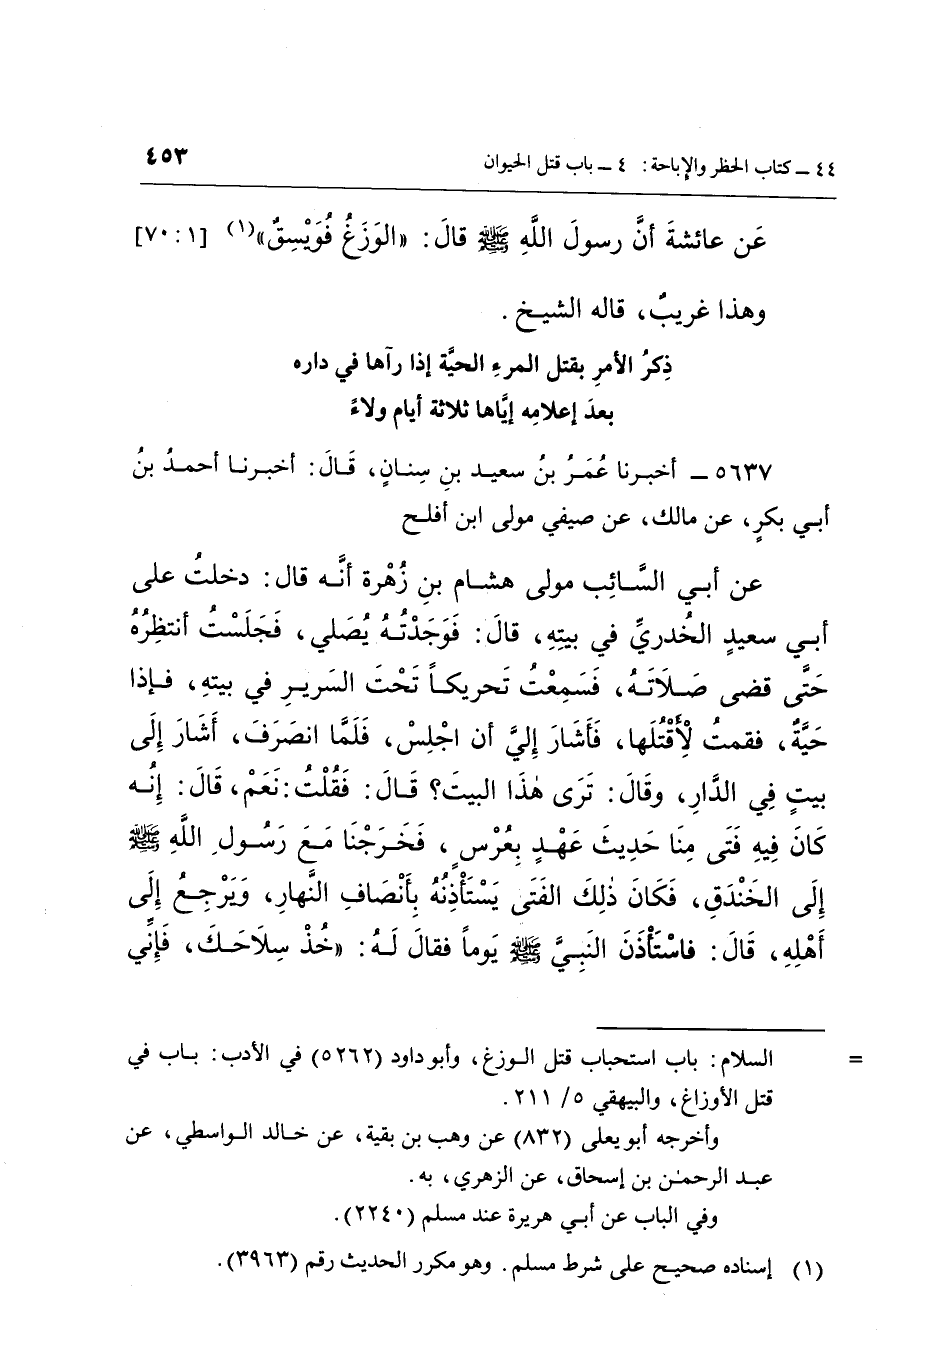 ٤٤ ـ كتاب الحظر والإباحة: ٤ ـ باب قتل الحيوان ٤٥٣
عَن عائشةَ أنَّ رسولَ اللَّهِ ﷺ قالَ: «الوَزَغُ فُوَيْسِقٌ»(١) [٧٠:١]
وهذا غريبٌ، قاله الشيخ.
ذِكرُ الأمرِ بقتل المرءِ الحيَّة إذا رآها في داره
بعدَ إعلامِه إيَّاها ثلاثة أيام ولاءً
٥٦٣٧ ـ أخبرنا عُمَرُ بنُ سعيد بنِ سِنانٍ، قَالَ: أخبرنا أحمدُ بنُ
أبي بكرٍ، عن مالك، عن صيفي مولى ابن أفلح
عن أبي السَّائِب مولى هشام بنِ زُهْرة أنَّه قال: دخلتُ على
أبي سعيدٍ الخُدريِّ في بيتِهِ، قالَ: فَوَجَدْتُهُ يُصَلي، فَجَلَسْتُ أنتظِرُهُ
حَتَّى قضى صَلاَتَهُ، فَسَمِعْتُ تحريكاً تَحْتَ السَريرِ في بيتهِ، فإذا
حَيَّةٌ، فقمتُ لِأَقْتُلَها، فَأَشَارَ إليَّ أن اجْلِسْ، فَلَمَّا انصَرَفَ، أَشَارَ إلى
بيتٍ فِي الدَّارِ، وقَالَ: تَرَى هٰذَا البيتَ؟ قَالَ: فَقُلْتُ: نَعَمْ، قَالَ: إنَّه
كَانَ فِيهِ فَتَى مِنَا حَدِيثَ عَهْدٍ بِعُرْسٍ، فَخَرَجْنَا مَعَ رَسُولِ اللَّهِ ﷺ
إِلَى الخَنْدَقِ، فَكَانَ ذٰلِكَ الفَتَى يَسْتَأْذِنُهُ بِأَنْصَافِ النَّهارِ، وَيَرْجِعُ إِلَى
أَهْلِهِ، قَالَ: فاسْتَأْذَنَ النَبِيَّ ﷺ يَوماً فقالَ لَهُ: «خُذْ سِلَاحَكَ، فَإِنِّي
= السلام: باب استحباب قتل الوزغ، وأبو داود (٥٢٦٢) في الأدب: باب في
قتل الأوزاغ، والبيهقي ٥/ ٢١١.
وأخرجه أبو يعلى (٨٣٢) عن وهب بن بقية، عن خالد الواسطي، عن
عبد الرحمٰن بن إسحاق، عن الزهري، به.
وفي الباب عن أبي هريرة عند مسلم (٢٢٤٠).
(١) إسناده صحيح على شرط مسلم. وهو مكرر الحديث رقم (٣٩٦٣).